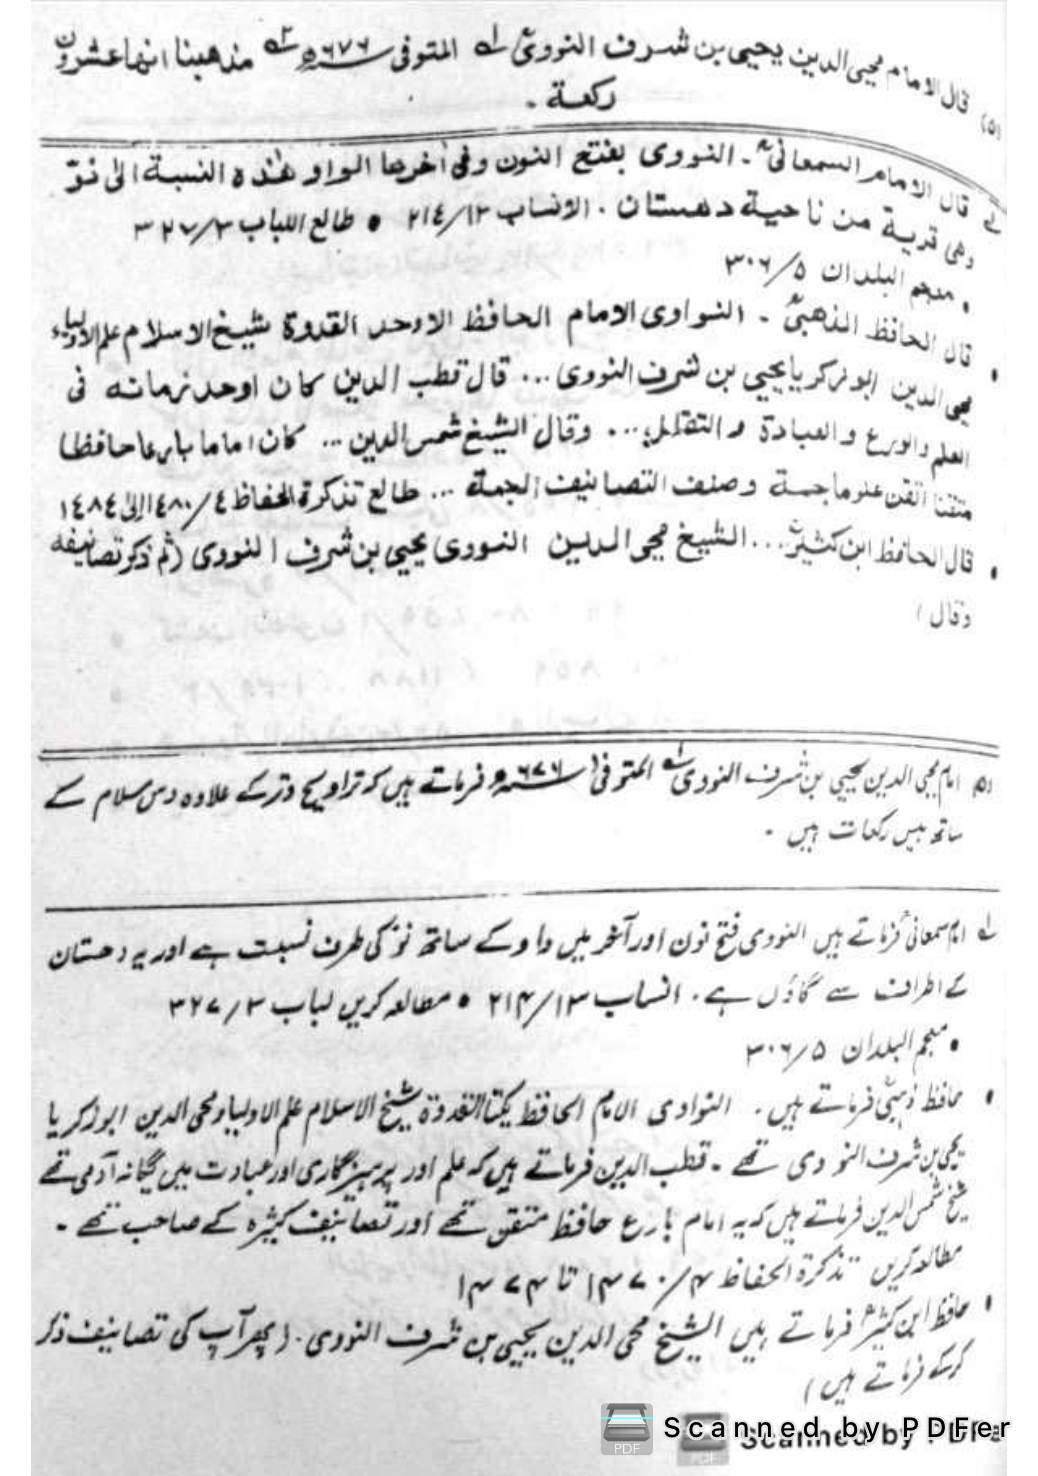 (٥) قال الامام محيى الدين يحيى بن شرف النووىؒ لہ المتوفى ٦٧٦ھ مذهبنا انها عشرون
ركعة -
لہ قال الامام السمعانىؒ - النووى بفتح النون وفى آخرها الواو هذه النسبة الى نوّ
وهى قرية من ناحية دهستان . الانساب ١٣/٢١٤ • طالع اللباب ٣/٣٢٧
• معجم البلدان ٥/٣٠٦
• قال الحافظ الذهبىؒ - النواوى الامام الحافظ الاوحد القدوة شيخ الاسلام علم الاولياء
محيى الدين ابو زكريا يحيي بن شرف النووى ... قال قطب الدين كان اوحد زمانه فى
العلم والورع والعبادة والتقلل ... وقال الشيخ شمس الدين ... كان اماما بارعا حافظا
متقنا اتقن علوما جمة وصنف التصانيف الجمة ... طالع تذكرة الحفاظ ٤/١٤٨٠ الى ١٤٨٤
• قال الحافظ ابن كثيرؒ ... الشيخ محى الدين النووى يحيى بن شرف النووى (ثم ذكر تصانيفه
وقال)
(۵) امام محیی الدین یحییٰ بن شرف النووی لہ المتوفی ۶۷۶ھ فرماتے ہیں کہ تراویح وتر کے علاوہ دس سلام کے
ساتھ بیس رکعات ہیں -
لہ امام سمعانیؒ فرماتے ہیں النووی فتح نون اور آخر میں واو کے ساتھ نوّ کی طرف نسبت ہے اور یہ دحستان
کے اطراف سے گاؤں ہے . انساب ۱۳/۲۱۴ • مطالعہ کریں لباب ۳/۳۲۷
• معجم البلدان ۵/۳۰۶
• حافظ ذہبیؒ فرماتے ہیں . النواوی الامام الحافظ یکتا القدوۃ شیخ الاسلام علم الاولیاء محی الدین ابوزکریا
یحیی بن شرف النووی تھے - قطب الدین فرماتے ہیں کہ علم اور پرہیزگاری اور عبادت میں یگانہ آدمی تھے
شیخ شمس الدین فرماتے ہیں کہ یہ امام بارع حافظ متقن تھے اور تصانیف کثیرہ کے صاحب تھے -
مطالعہ کریں تذکرۃ الحفاظ ۴/۱۴۷۰ تا ۱۴۷۴
• حافظ ابن کثیرؒ فرماتے ہیں الشیخ محی الدین یحییٰ بن شرف النووی . (پھر آپ کی تصانیف ذکر
کرکے فرماتے ہیں)
Scanned by PDFer
Scanned by PDFe
PDF
PDF